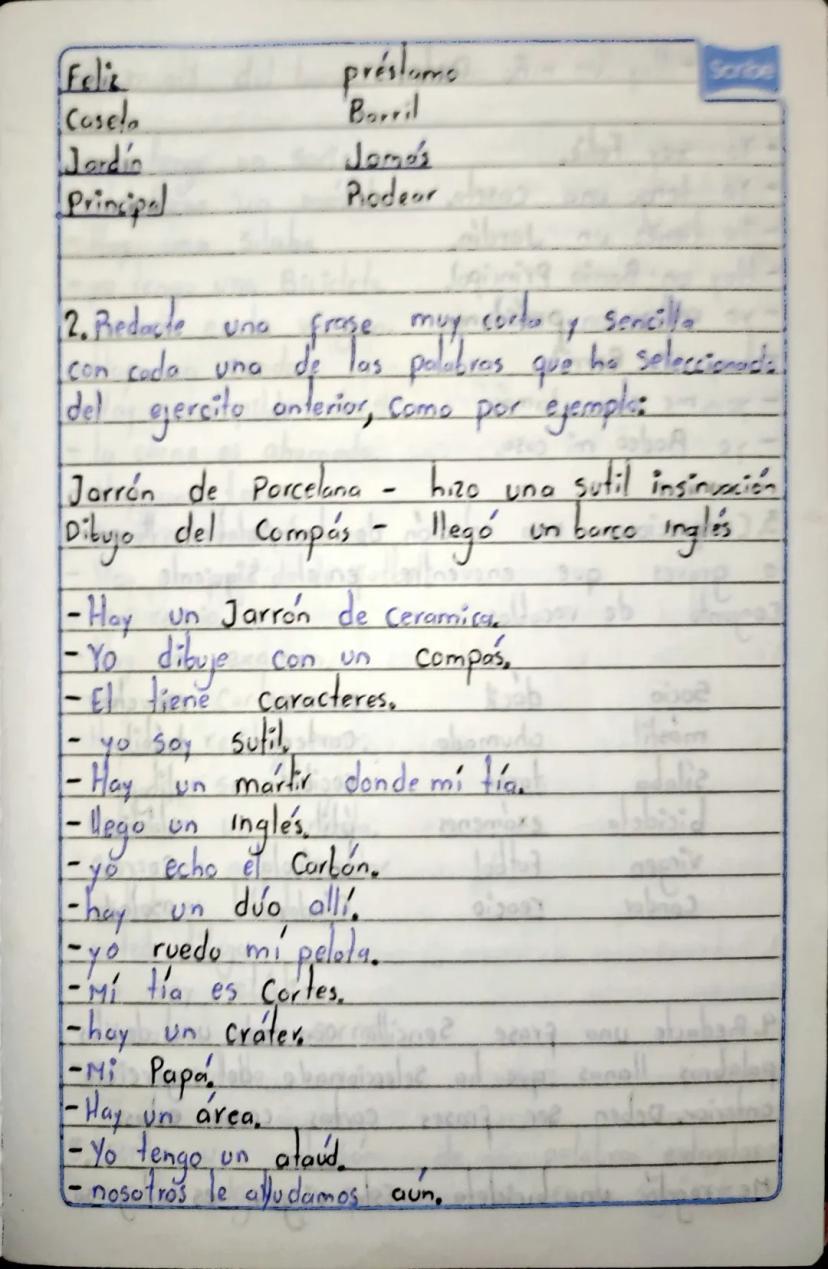 Scribe
Feliz préstamo
Caseta Barril
Jardín Jamás
Principal Rodear
2. Redacte una frase muy corta y sencilla
con cada una de las palabras que ha seleccionado
del ejercito anterior, como por ejemplo:
Jarrón de Porcelana - hizo una sutil insinuación
Dibujo del Compás - llegó un barco inglés
- Hay un Jarrón de ceramica.
- Yo dibuje con un compás.
- El tiene caracteres.
- yo soy sutil.
- Hay un mártir donde mí tía.
- llego un inglés.
- yo echo el Carbón.
- hay un dúo allí.
- yo ruedo mí pelota.
- Mí tía es Cortes.
- hay un cráter.
- Mi Papá.
- Hay un área.
- Yo tengo un ataúd.
- nosotros le alludamos aún.